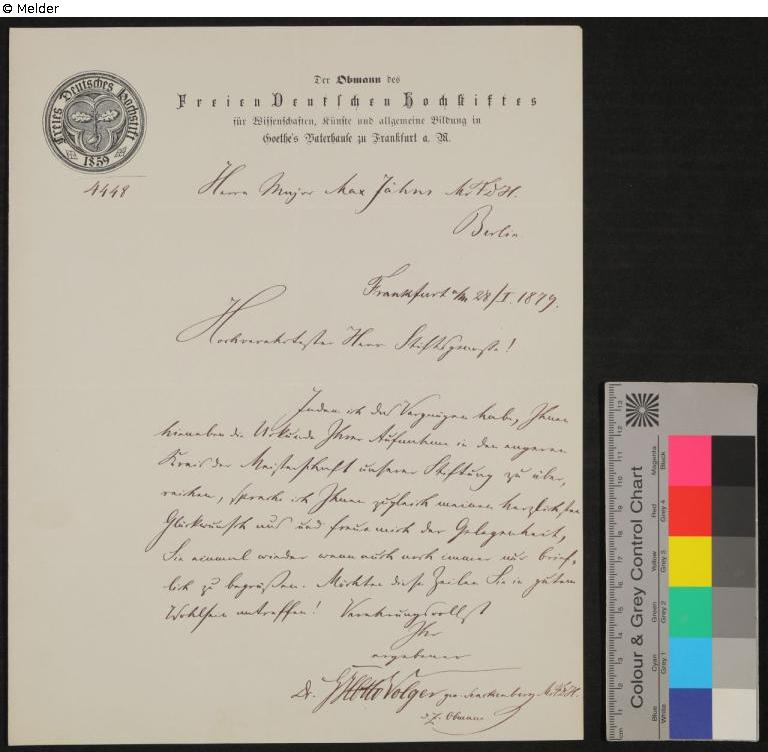 © Melder
Freies Deutsches Hochstift
1859
Der Obmann des
Freien Deutschen Hochstiftes
für Wissenschaften, Künste und allgemeine Bildung in
Goethe's Vaterhause zu Frankfurt a. M.
4448
Herrn Major Max Jähns M. FDH.
Berlin
Frankfurt a/M 28/I. 1879.
Hochverehrtester Herr Stiftsgenosse!
Indem ich das Vergnügen habe, Ihnen
hieneben die Urkunde Ihrer Aufnahme in den engeren
Kreis der Meisterschaft unserer Stiftung zu über-
reichen, spreche ich Ihnen zugleich meinen herzlichsten
Glückwunsch aus und freue mich der Gelegenheit,
Sie einmal wieder wenn auch noch immer nur brief-
lich zu begrüßen. Möchten diese Zeilen Sie in gutem
Wohlsein antreffen! Verehrungsvollst
Ihr
ergebener
Dr. GHOtto Volger gen. Senckenberg M. FDH.
d. Z. Obmann
Colour & Grey Control Chart
Blue Cyan Green Yellow Red Magenta
White Grey 1 Grey 2 Grey 3 Grey 4 Black
cm 1 2 3 4 5 6 7 8 9 10 11 12 13